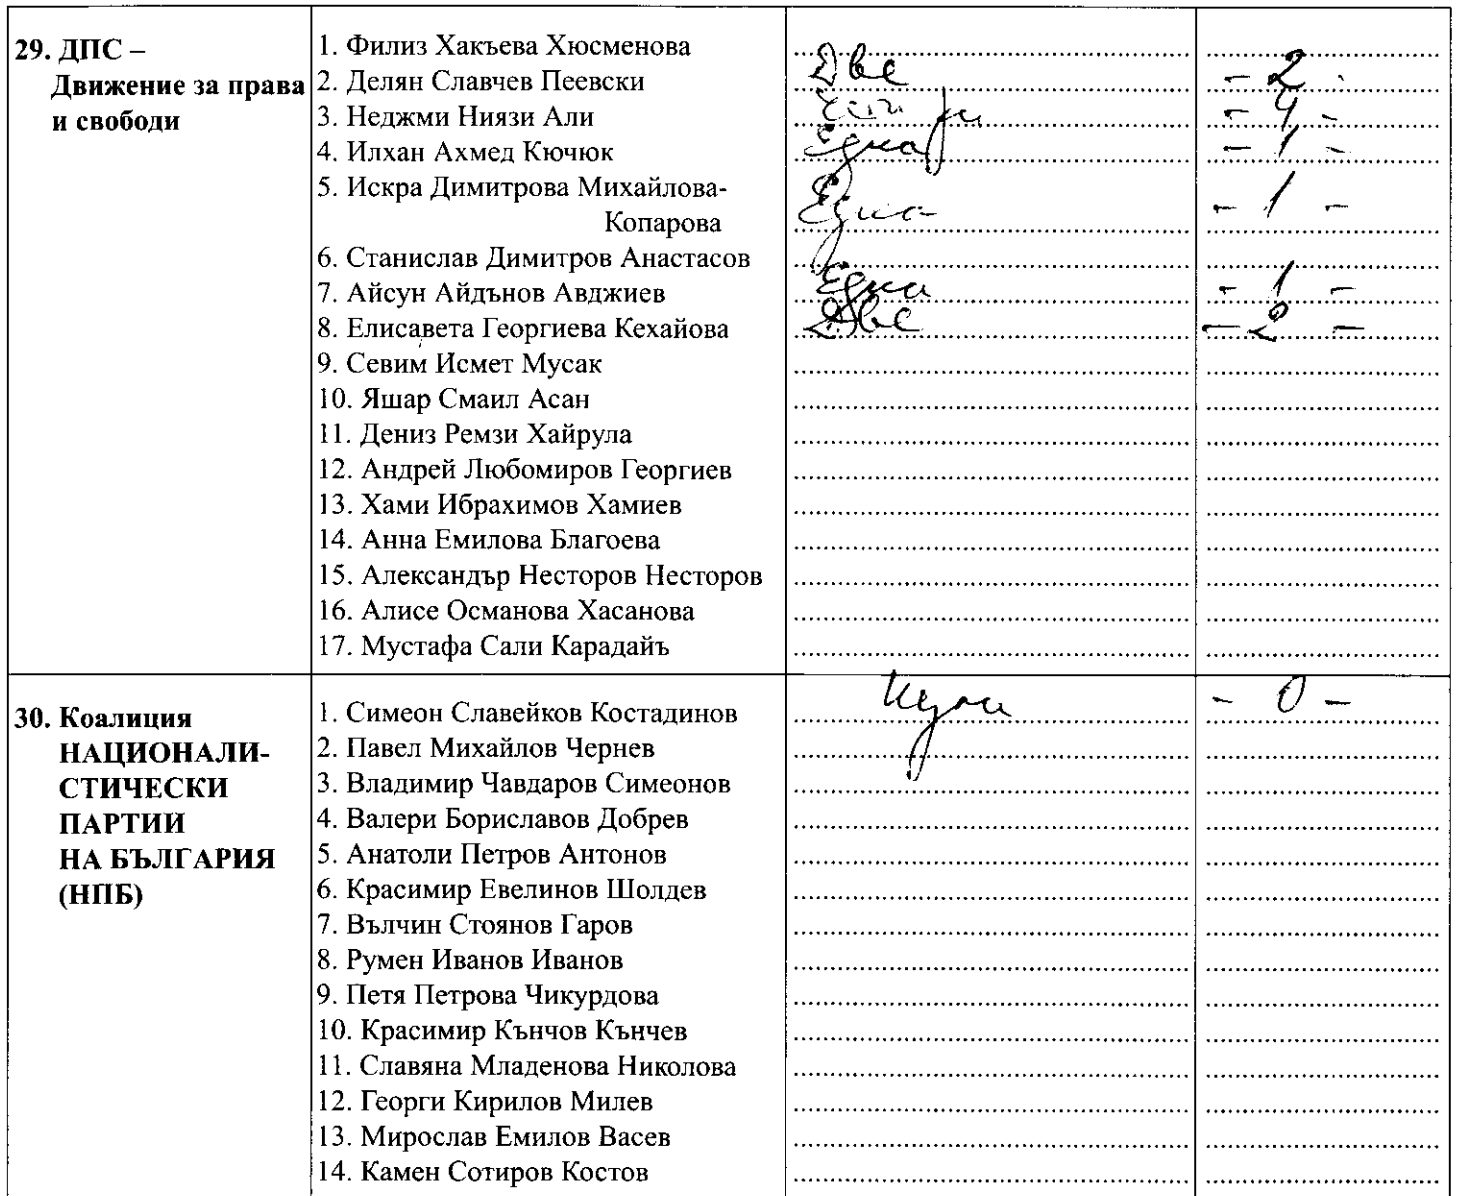 29. ДПС –
Движение за права
и свободи
1. Филиз Хакъева Хюсменова
2. Делян Славчев Пеевски Две - 2 -
3. Неджми Ниязи Али - 4 -
4. Илхан Ахмед Кючюк Една - 1 -
5. Искра Димитрова Михайлова-
Копарова Една - 1 -
6. Станислав Димитров Анастасов
7. Айсун Айдънов Авджиев Една - 1 -
8. Елисавета Георгиева Кехайова Две - 2 -
9. Севим Исмет Мусак
10. Яшар Смаил Асан
11. Дениз Ремзи Хайрула
12. Андрей Любомиров Георгиев
13. Хами Ибрахимов Хамиев
14. Анна Емилова Благоева
15. Александър Несторов Несторов
16. Алисе Османова Хасанова
17. Мустафа Сали Карадайъ
30. Коалиция
НАЦИОНАЛИ-
СТИЧЕСКИ
ПАРТИИ
НА БЪЛГАРИЯ
(НПБ)
1. Симеон Славейков Костадинов - 0 -
2. Павел Михайлов Чернев
3. Владимир Чавдаров Симеонов
4. Валери Бориславов Добрев
5. Анатоли Петров Антонов
6. Красимир Евелинов Шолдев
7. Вълчин Стоянов Гаров
8. Румен Иванов Иванов
9. Петя Петрова Чикурдова
10. Красимир Кънчов Кънчев
11. Славяна Младенова Николова
12. Георги Кирилов Милев
13. Мирослав Емилов Васев
14. Камен Сотиров Костов